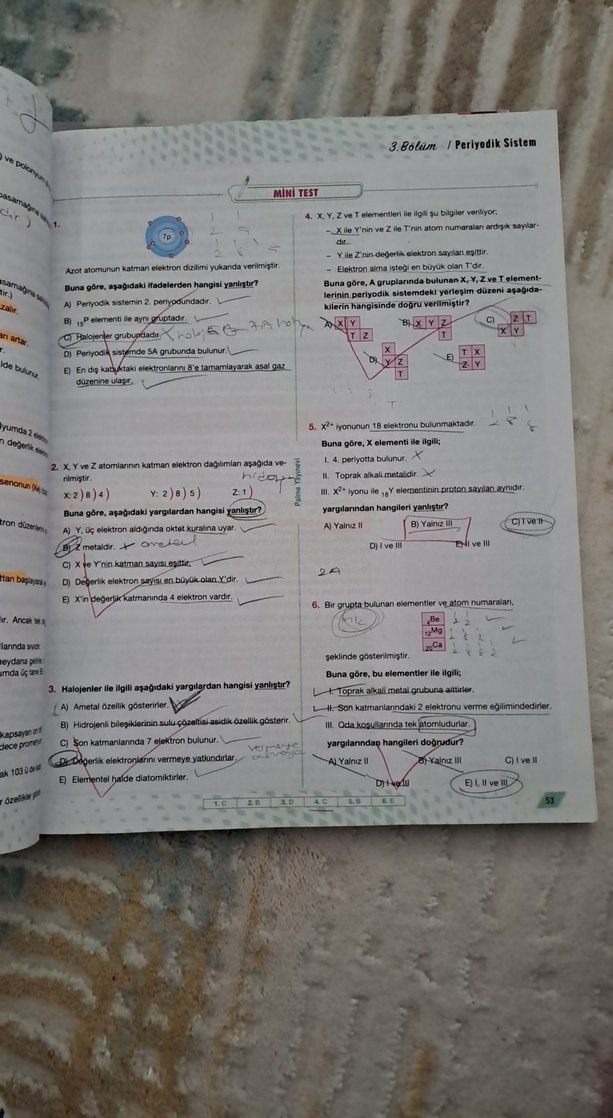 3.Bölüm / Periyodik Sistem
MİNİ TEST
1.
7p
Azot atomunun katman elektron dizilimi yukarıda verilmiştir.
Buna göre, aşağıdaki ifadelerden hangisi yanlıştır?
A) Periyodik sistemin 2. periyodundadır.
B) 15P elementi ile aynı gruptadır.
C) Halojenler grubundadır.
D) Periyodik sistemde 5A grubunda bulunur.
E) En dış kabuktaki elektronlarını 8'e tamamlayarak asal gaz
düzenine ulaşır.
2. X, Y ve Z atomlarının katman elektron dağılımları aşağıda ve-
rilmiştir.
X: 2 ) 8 ) 4 ) Y: 2 ) 8 ) 5 ) Z: 1 )
Buna göre, aşağıdaki yargılardan hangisi yanlıştır?
A) Y, üç elektron aldığında oktet kuralına uyar.
B) Z metaldir.
ametal
C) X ve Y'nin katman sayısı eşittir.
D) Değerlik elektron sayısı en büyük olan Y'dir.
E) X'in değerlik katmanında 4 elektron vardır.
3. Halojenler ile ilgili aşağıdaki yargılardan hangisi yanlıştır?
A) Ametal özellik gösterirler.
B) Hidrojenli bileşiklerinin sulu çözeltisi asidik özellik gösterir.
C) Son katmanlarında 7 elektron bulunur.
D) Değerlik elektronlarını vermeye yatkındırlar.
E) Elementel halde diatomiktirler.
Palme Yayınevi
4. X, Y, Z ve T elementleri ile ilgili şu bilgiler veriliyor;
– X ile Y'nin ve Z ile T'nin atom numaraları ardışık sayılar-
dır.
– Y ile Z'nin değerlik elektron sayıları eşittir.
– Elektron alma isteği en büyük olan T'dir.
Buna göre, A gruplarında bulunan X, Y, Z ve T element-
lerinin periyodik sistemdeki yerleşim düzeni aşağıda-
kilerin hangisinde doğru verilmiştir?
A) X Y
T Z
B) X Y Z
T
C) Z T
X Y
D) X
Y Z
T
E) T X
Z Y
5. X2+ iyonunun 18 elektronu bulunmaktadır.
2 8 8
Buna göre, X elementi ile ilgili;
I. 4. periyotta bulunur.
II. Toprak alkali metalidir.
III. X2+ iyonu ile 18Y elementinin proton sayıları aynıdır.
yargılarından hangileri yanlıştır?
A) Yalnız II B) Yalnız III C) I ve II
D) I ve III E) II ve III
2A
6. Bir grupta bulunan elementler ve atom numaraları,
4Be
12Mg
20Ca
şeklinde gösterilmiştir.
Buna göre, bu elementler ile ilgili;
I. Toprak alkali metal grubuna aittirler.
II. Son katmanlarındaki 2 elektronu verme eğilimindedirler.
III. Oda koşullarında tek atomludurlar.
yargılarından hangileri doğrudur?
A) Yalnız II B) Yalnız III C) I ve II
D) I ve III E) I, II ve III
1. C 2. B 3. D 4. C 5. B 6. E
53